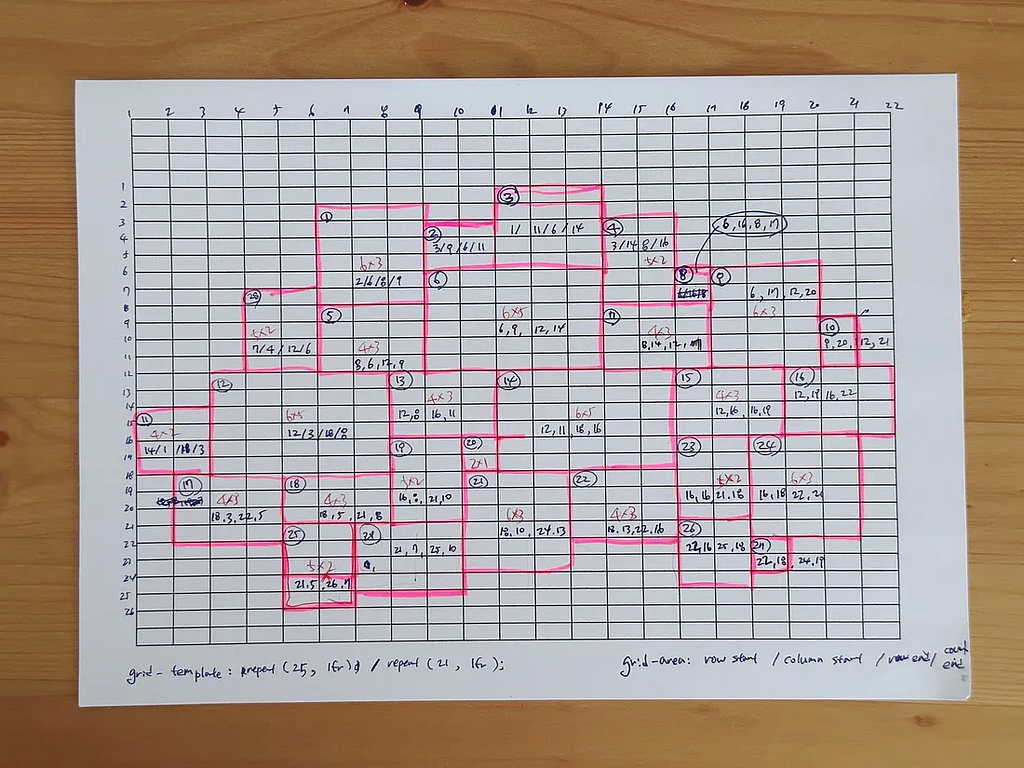 1 2 3 4 5 6 7 8 9 10 11 12 13 14 15 16 17 18 19 20 21 22
1
2
3
4
5
6
7
8
9
10
11
12
13
14
15
16
17
18
19
20
21
22
23
24
25
26
1
6x3
2/6/8/9
2
3/9/6/11
3
1/ 11/6/14
4
3/14/8/16
5x2
6,16,8,17
5
4x3
8,6,12,9
6
6x5
6,9, 12,14
7
4x3
8,14,12,
8
9
6, 17, 12,20
6x3
10
9,20, 12,21
28
5x2
7/4/12/6
11
14/1 /18/3
12
6x5
12/3/18/8
13
4x3
12,8 16,11
14
6x5
12,11,18,16
15
4x3
12,16, 16,19
16
12,19 16,22
17
4x3
18,3,22,5
18
4x3
18,5,21,8
19
5x2
16,8,21,10
20
2x1
21
18,10,24,13
22
18,13,22,16
23
5x2
16,16 21,18
24
6x3
16,18 22,21
25
5x2
21,5,26,7
21,7,25,10
26
22,16 25,18
27
22,18, 24,19
grid-template: repeat (25, 1fr) / repeat (21, 1fr);
grid-area: row start / column start / row end/
end